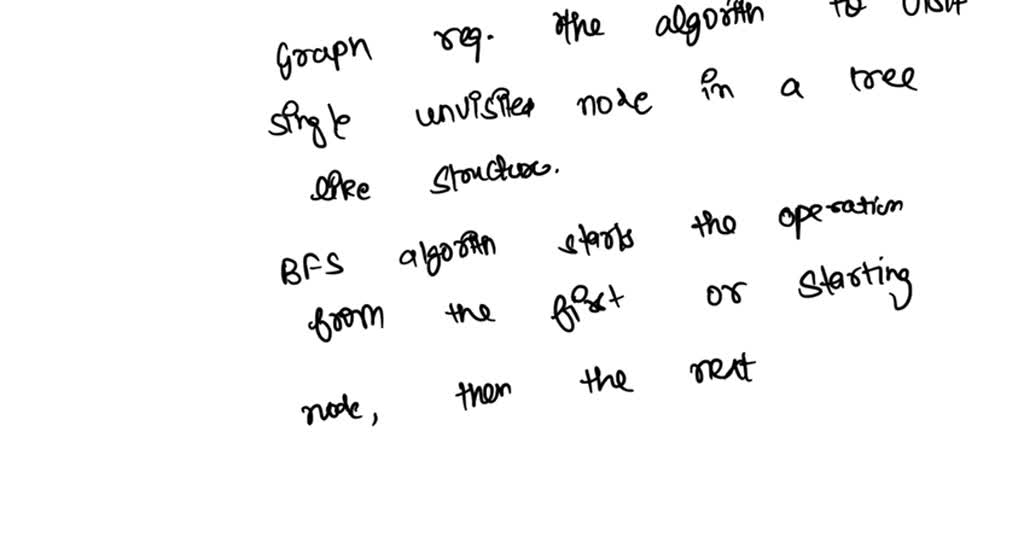 Graph req. the algorithm to visit
single unvisited node in a tree
like structure.
BFS algorithm starts the operation
from the first or starting
node, then the next